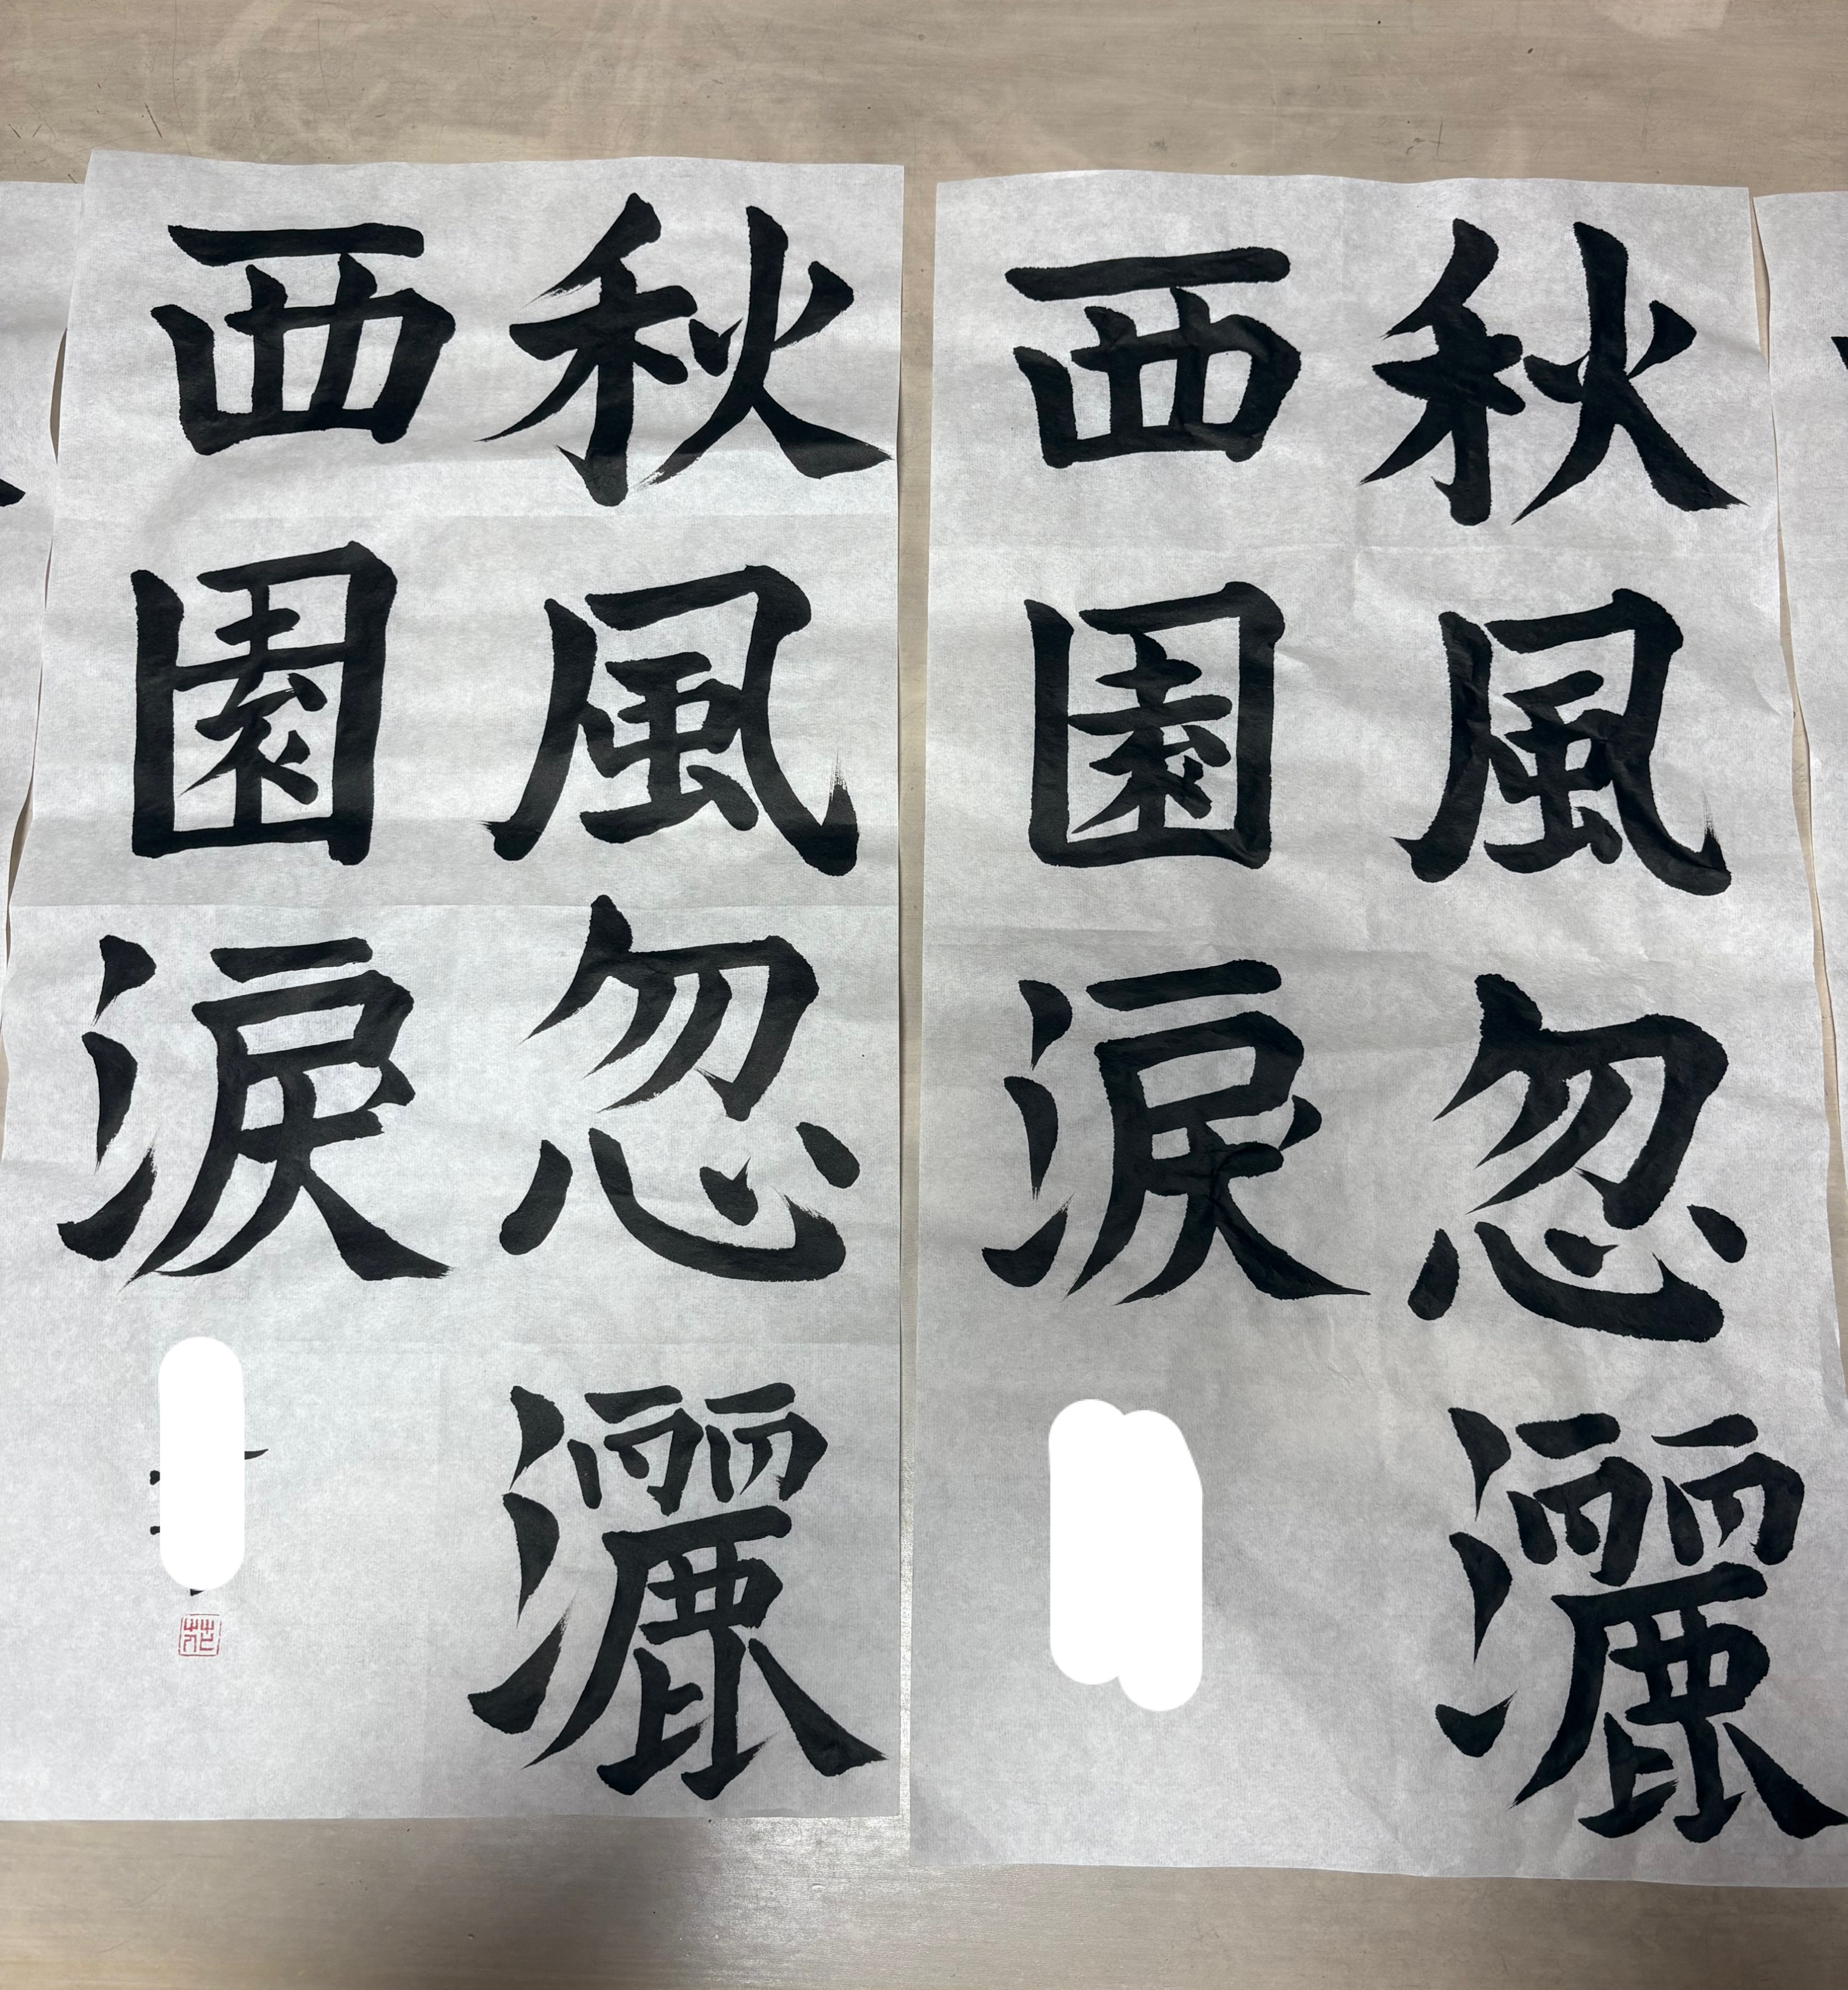 秋風忽灑
西園淚
秋風忽灑
西園淚